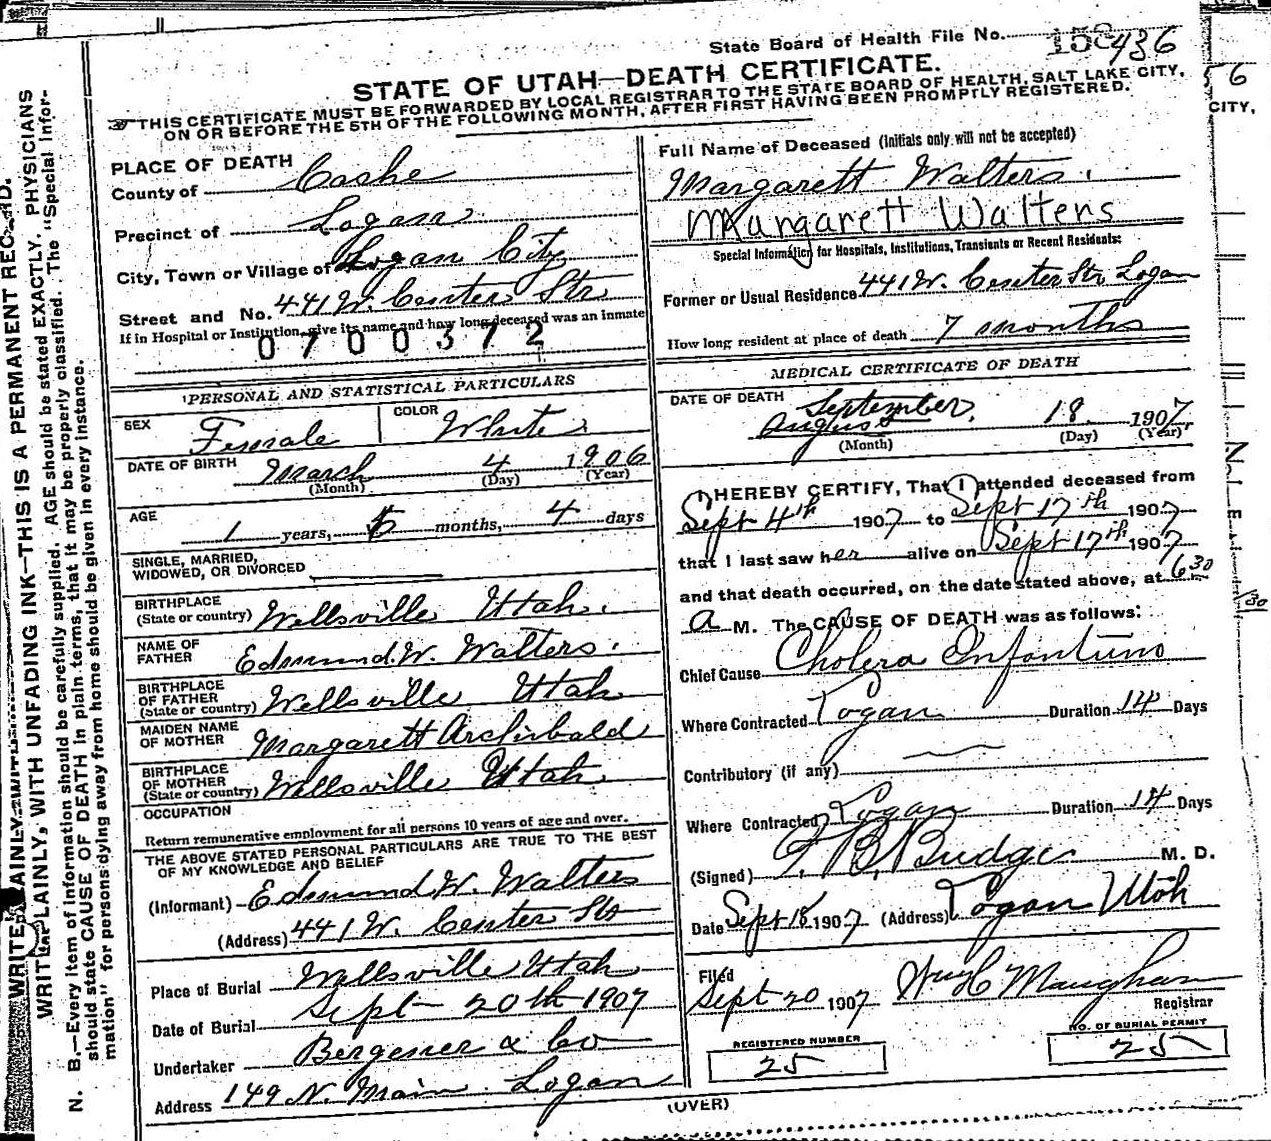 State Board of Health File No. 436
STATE OF UTAH—DEATH CERTIFICATE.
THIS CERTIFICATE MUST BE FORWARDED BY LOCAL REGISTRAR TO THE STATE BOARD OF HEALTH, SALT LAKE CITY,
ON OR BEFORE THE 5TH OF THE FOLLOWING MONTH, AFTER FIRST HAVING BEEN PROMPTLY REGISTERED.
6
CITY,
WRITE PLAINLY, WITH UNFADING INK—THIS IS A PERMANENT RECORD.
N. B.—Every item of information should be carefully supplied. AGE should be stated EXACTLY. PHYSICIANS
should state CAUSE OF DEATH in plain terms, that it may be properly classified. The "Special Infor-
mation" for persons dying away from home should be given in every instance.
PLACE OF DEATH
County of Cashe
Precinct of Logan
City, Town or Village of Logan City
Street and No. 441 W. Center Str
If in Hospital or Institution, give its name and how long deceased was an inmate
0700372
PERSONAL AND STATISTICAL PARTICULARS
SEX Female COLOR White
DATE OF BIRTH March 4 1906
(Month) (Day) (Year)
AGE 1 years, 6 months, 4 days
SINGLE, MARRIED,
WIDOWED, OR DIVORCED
BIRTHPLACE
(State or country) Wellsville Utah.
NAME OF
FATHER Edmund. W. Walters.
BIRTHPLACE
OF FATHER
(State or country) Wellsville Utah
MAIDEN NAME
OF MOTHER Margarett Archibald
BIRTHPLACE
OF MOTHER
(State or country) Wellsville Utah.
OCCUPATION
Return remunerative employment for all persons 10 years of age and over.
THE ABOVE STATED PERSONAL PARTICULARS ARE TRUE TO THE BEST
OF MY KNOWLEDGE AND BELIEF
(Informant) Edmund. W. Walters
(Address) 441 W. Center Str
Place of Burial Wellsville Utah
Date of Burial Sept 20th 1907
Undertaker Bergener & Co
Address 149 N. Main Logan
Full Name of Deceased (Initials only will not be accepted)
Margarett Walters.
Margarett Walters
Special Information for Hospitals, Institutions, Transients or Recent Residents:
Former or Usual Residence 441 W. Center Str Logan
How long resident at place of death 7 months
MEDICAL CERTIFICATE OF DEATH
DATE OF DEATH September.
August 18 1907
(Month) (Day) (Year)
I HEREBY CERTIFY, That I attended deceased from
Sept 4th 1907 to Sept 17th 1907
that I last saw her alive on Sept 17th 1907
and that death occurred, on the date stated above, at 6 30
a M. The CAUSE OF DEATH was as follows:
Chief Cause Cholera Infantum
Where Contracted Logan Duration 14 Days
Contributory (if any)
Where Contracted Logan Duration 14 Days
(Signed) Budge M. D.
Date Sept 18 1907 (Address) Logan Utah
Filed
Sept 20 1907 Maughan
Registrar
REGISTERED NUMBER
25
NO. OF BURIAL PERMIT
25
(OVER)